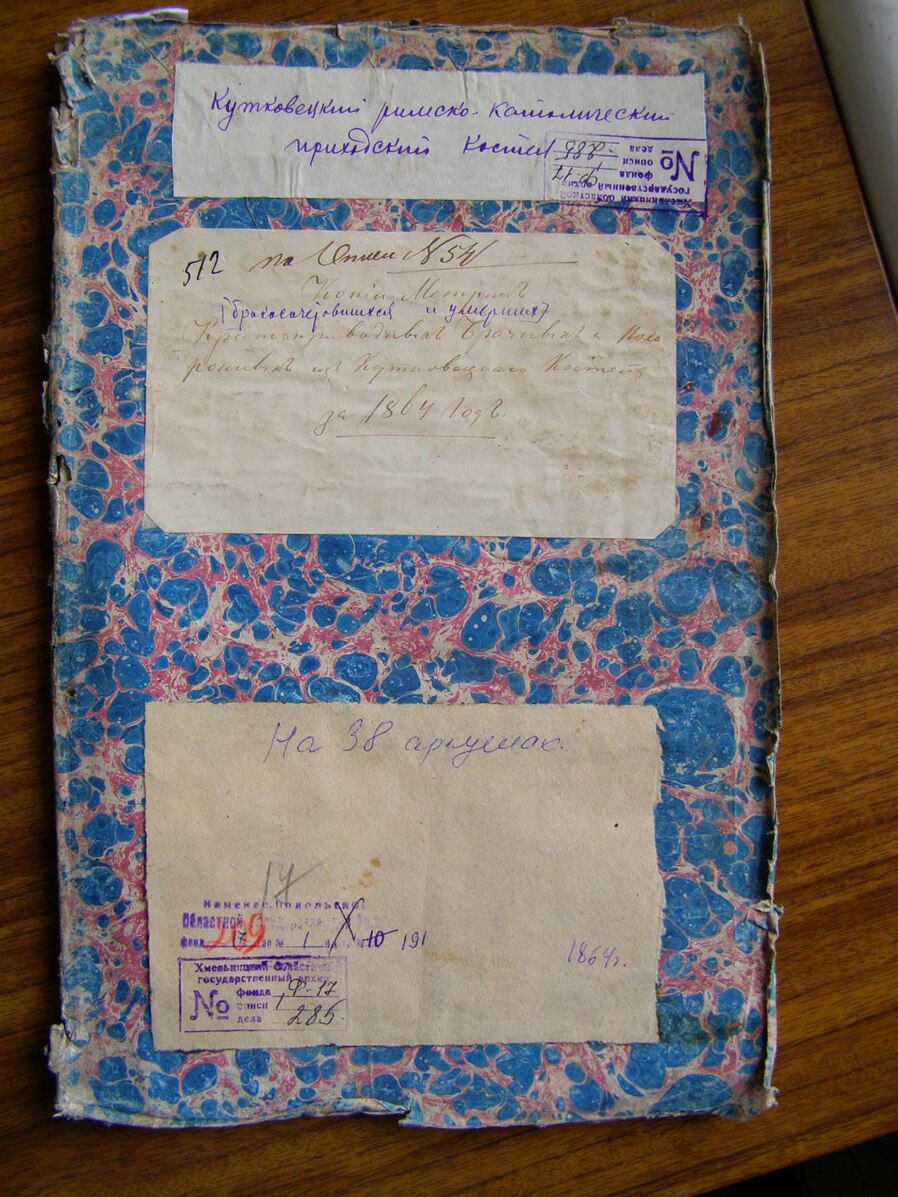 Кутковецкий римско-католический
приходский костел
Хмельницкий областной
государственный архив
№
фонда Ф-17
описи 1
дела 285
512 по Описи №54
Копіи Метрикъ
(бракосочетовшихся и умерших)
Брачныхъ и Похо
ронныхъ изъ Кутковецкаго Костела
за 1864 годъ.
На 38 аркушах.
17
Каменец-Подольский
Областной
фонд 17 оп № 1 10 191
209
1864г.
Хмельницкий областной
государственный архив
№
фонда Ф-17
описи 1
дела 285